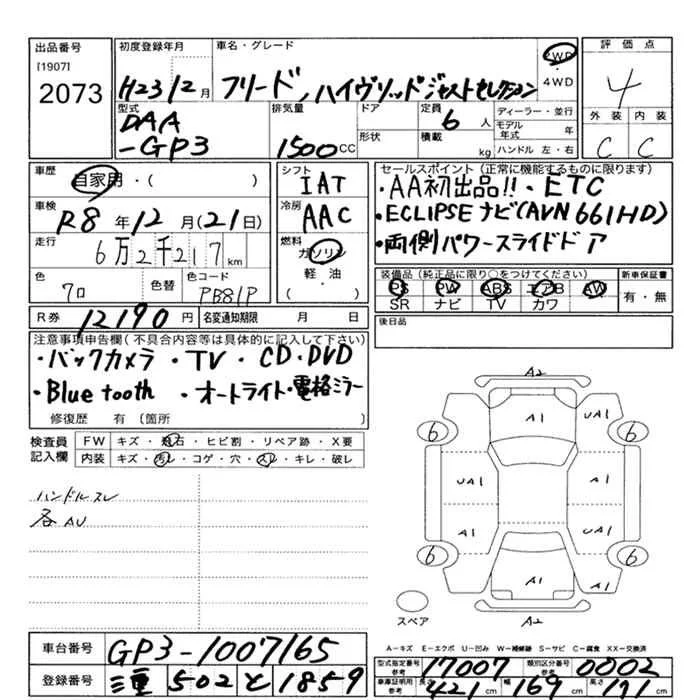 出品番号
[1907]
2073
初度登録年月
H23 12月
車名・グレード
フリード,ハイヴリッドジャストセレクション
2WD
・
4WD
評価点
4
型式
DAA
-GP3
排気量
1500CC
ドア
形状
定員
6人
積載
kg
ディーラー・並行
モデル
年式
年
ハンドル 左・右
外装
C
内装
C
車歴
自家用・( )
車検
R8年12月(21日)
走行
6万2千217km
色
クロ
色替
色コード
PB81P
シフト
IAT
冷房
AAC
燃料
ガソリン
軽・油
( )
セールスポイント(正常に機能するものに限ります)
・AA初出品!!・ETC
・ECLIPSEナビ(AVN661HD)
・両側パワースライドドア
装備品(純正品に限り○をつけてください)
PS PW ABS エアB AW
SR ナビ TV カワ
新車保証書
有・無
R券
12190円
名変通知期限
月 日
後日品
注意事項申告欄(不具合内容等は具体的に記入して下さい)
・バックカメラ ・TV ・CD・DVD
・Bluetooth ・オートライト・電格ミラー
修復歴 有 (箇所
検査員
記入欄
FW
キズ・飛石・ヒビ割・リペア跡・X要
内装
キズ・汚レ・コゲ・穴・スレ・キレ・破レ
ハンドルスレ
各AU
A2
6
A1
UA1
6
UA1
A1
A1
UA1
6
A1
A1
6
スペア
A2
A-キズ E-エクボ U-凹み W-補修跡 S-サビ C-腐食 XX-交換済
車台番号
GP3-1007165
登録番号
三重 502 と 1859
型式指定番号
参考
17007
類別区分番号
参考
0002
車庫証明用
参考
長さ
421cm
幅
169cm
高さ
171cm